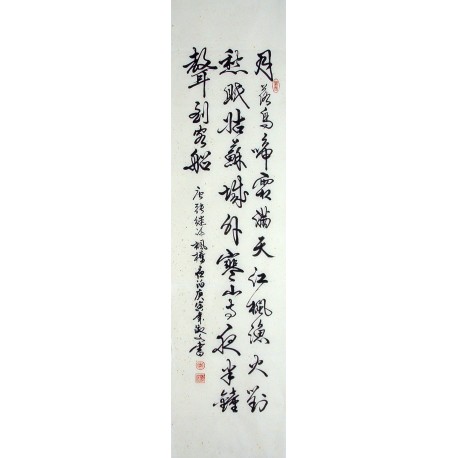 月落烏啼霜滿天江楓漁火對
愁眠姑蘇城外寒山寺夜半鐘
聲到客船
唐張繼詩楓橋夜泊庚寅年
書